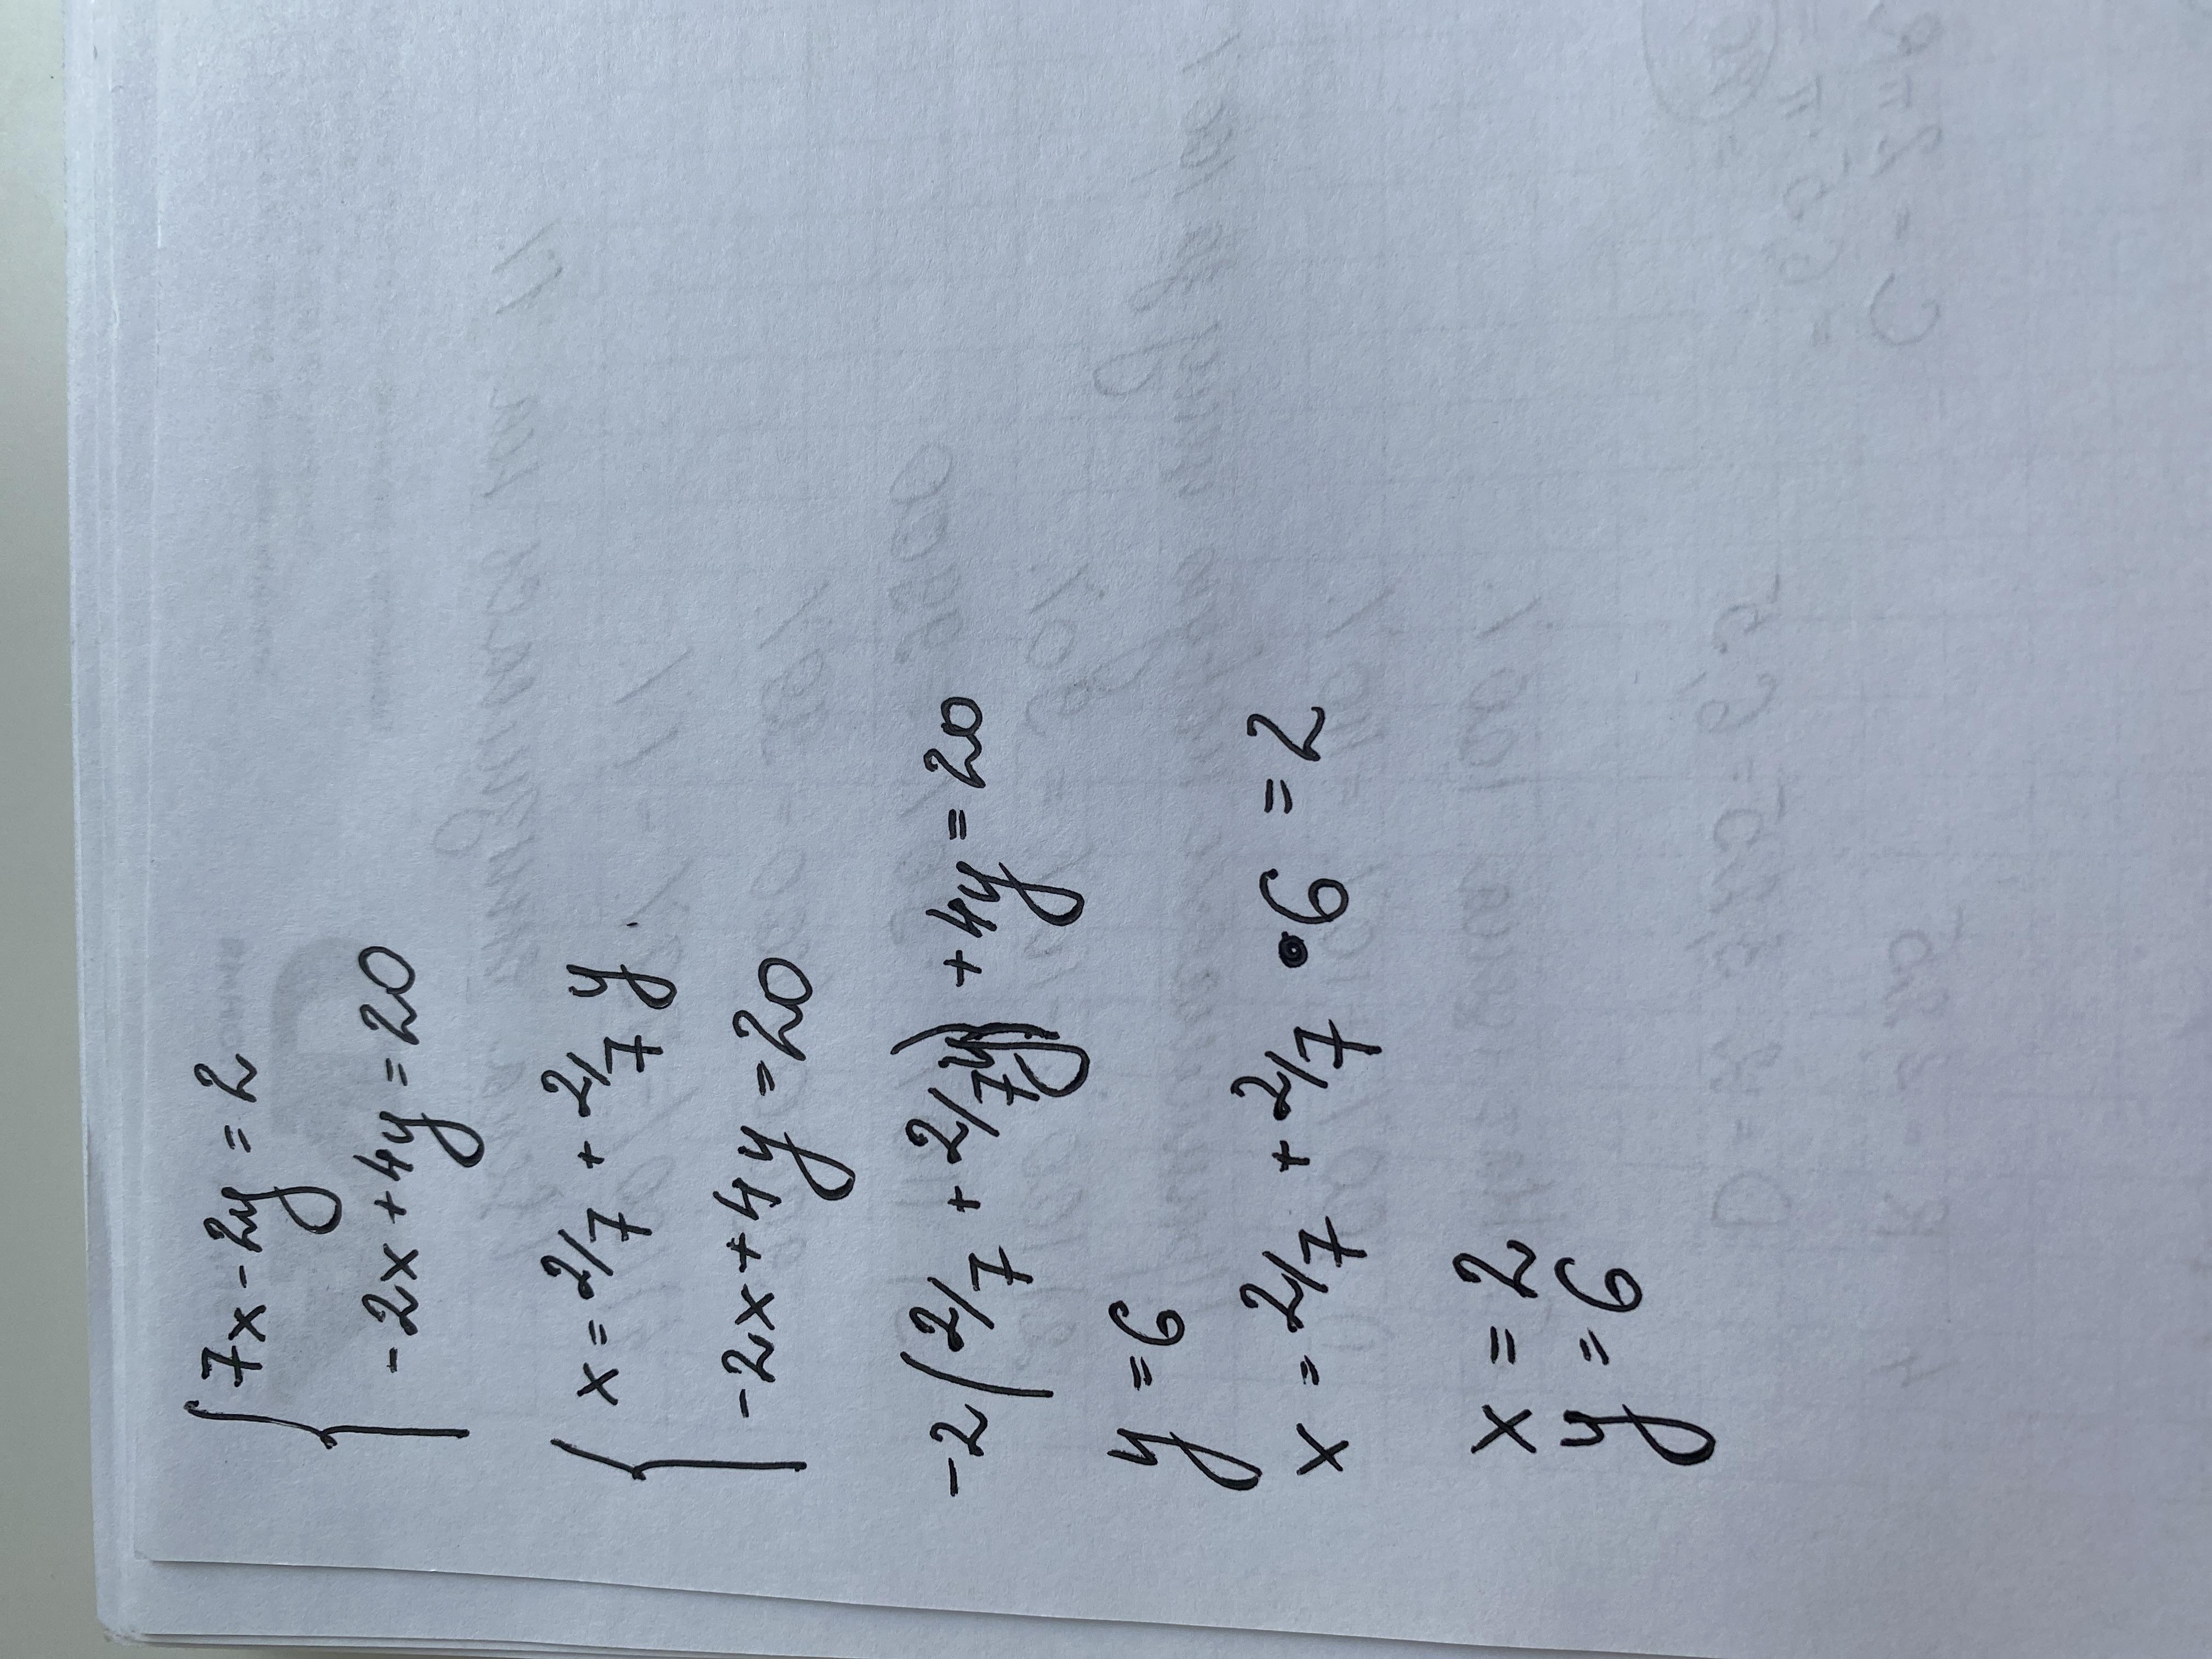 7x-2y=2
-2x+4y=20
x=2/7+2/7y
-2x+4y=20
-2(2/7+2/7y)+4y=20
y=6
x=2/7+2/7•6=2
x=2
y=6